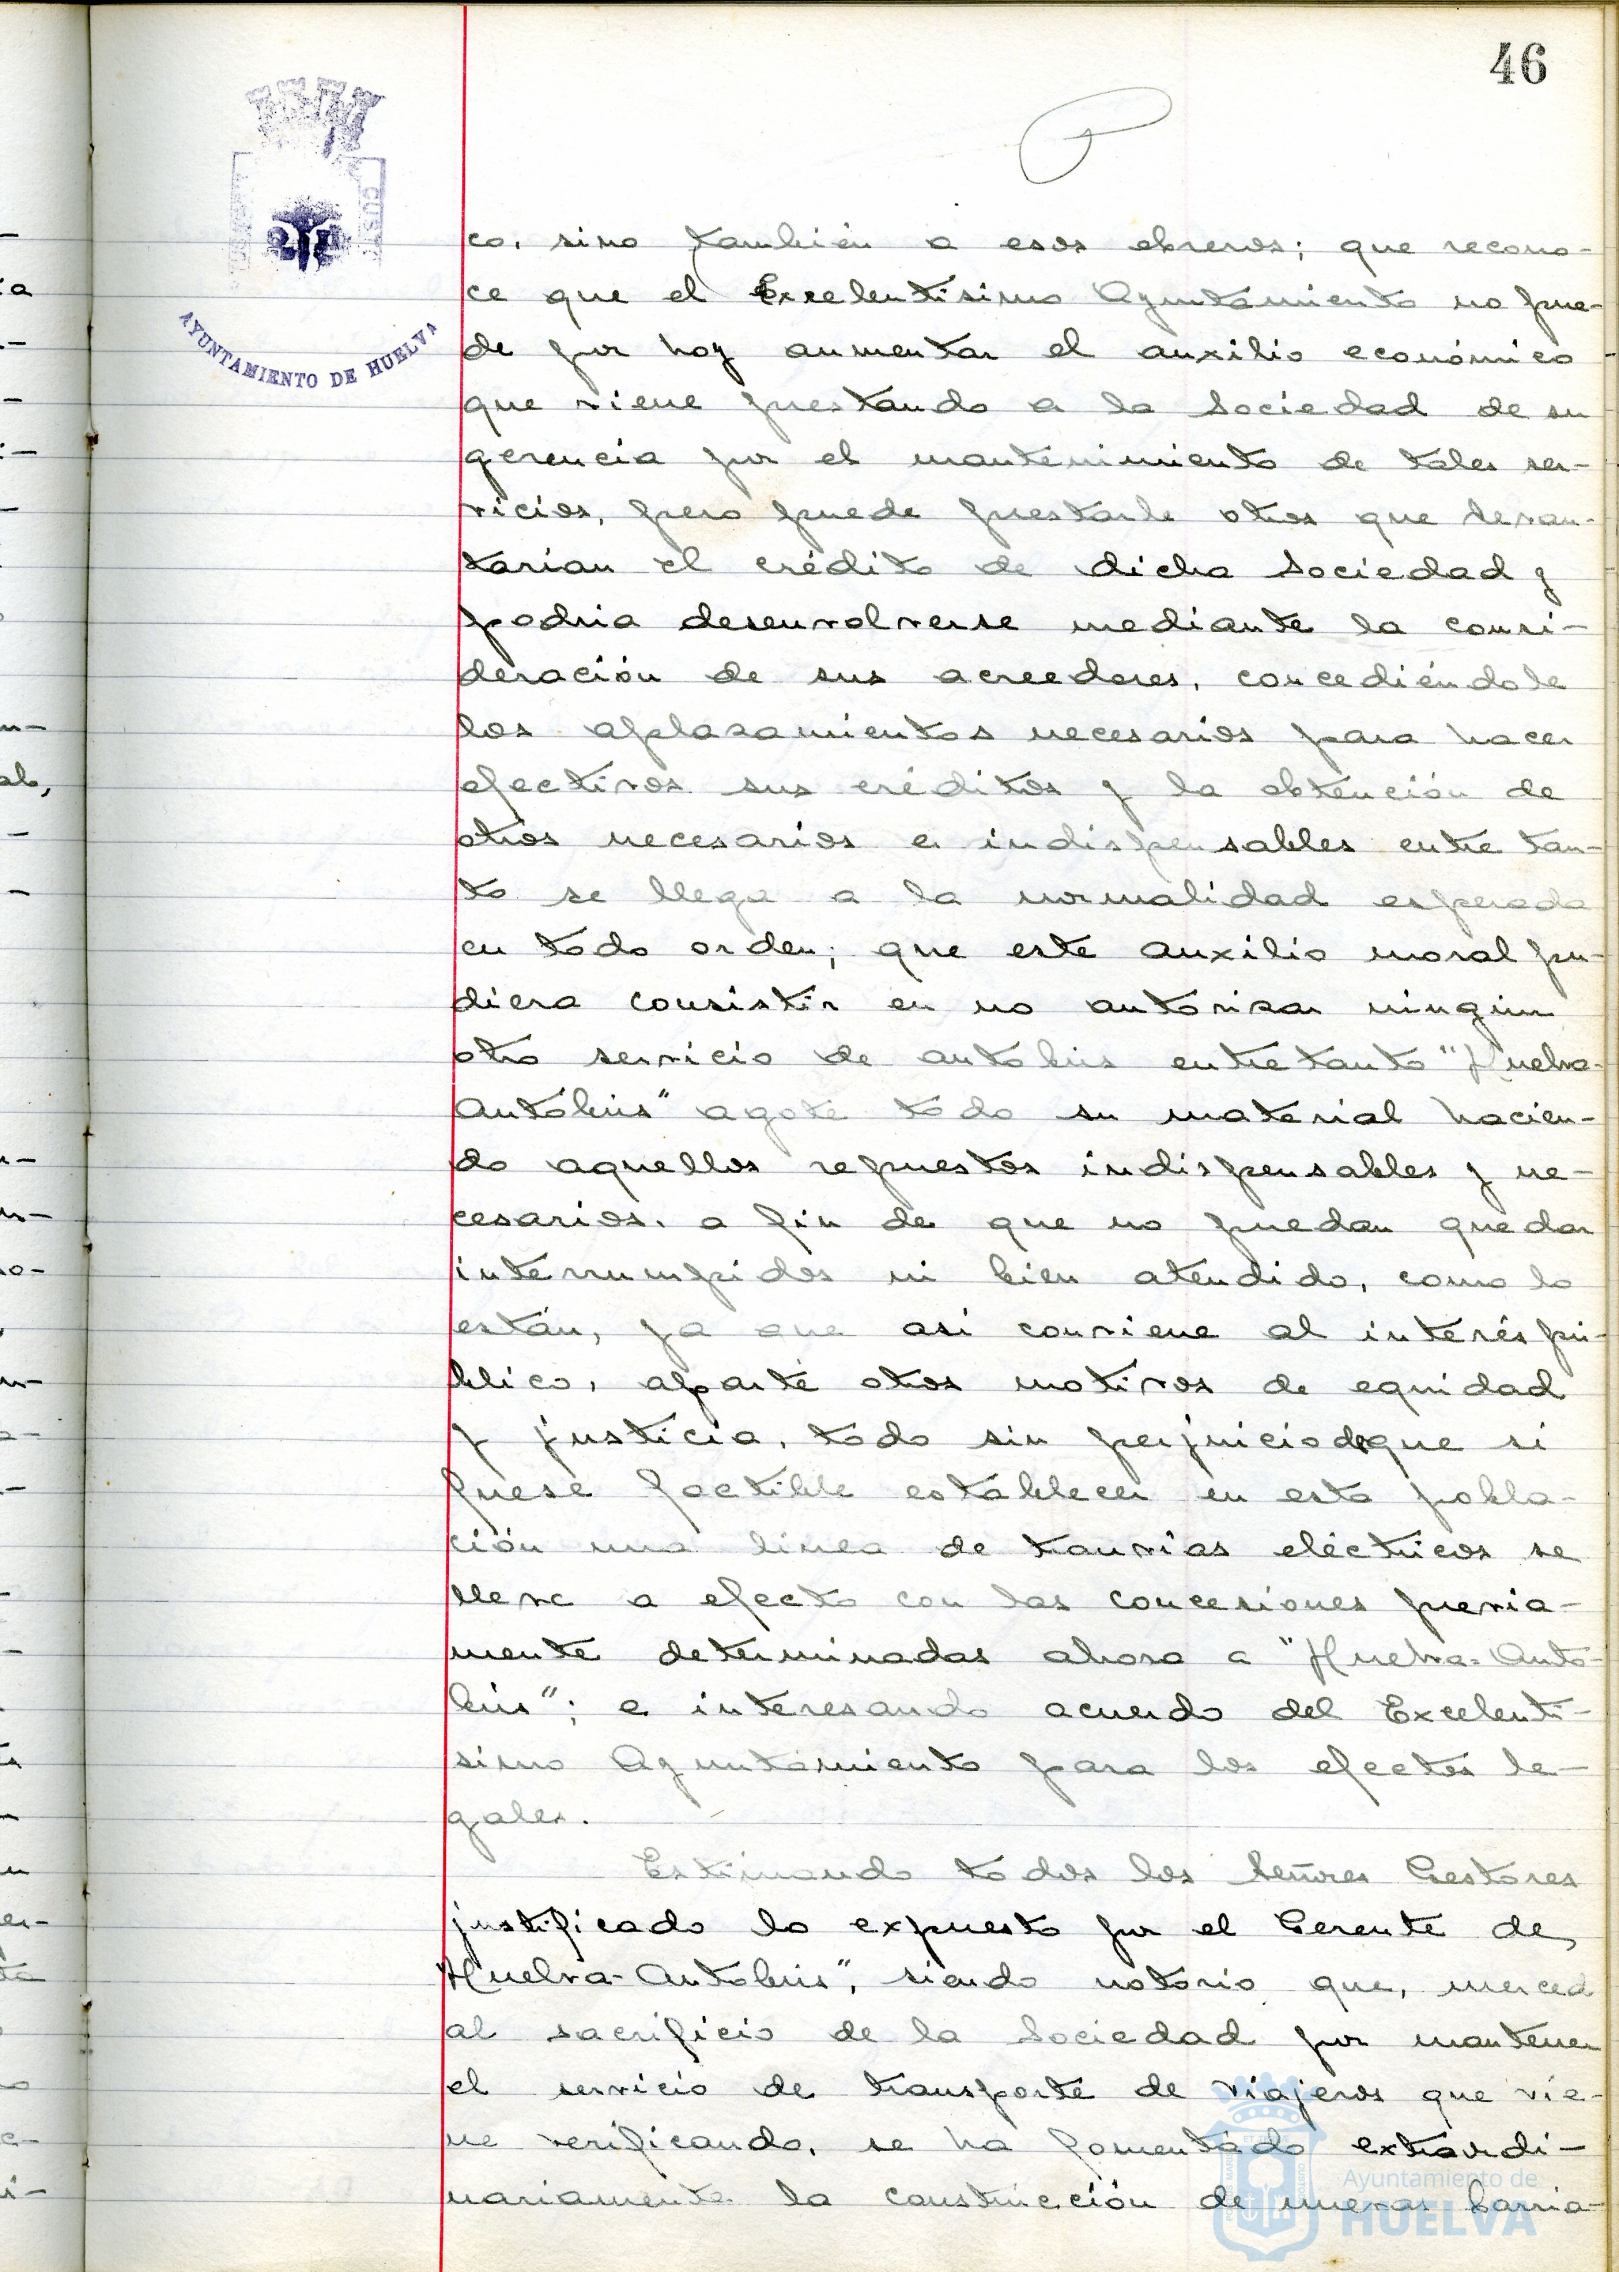 46
AYUNTAMIENTO DE HUELVA
co, sino también a esos obreros; que recono-
ce que el Excelentísimo Ayuntamiento no pue-
de por hoy aumentar el auxilio económico
que viene prestando a la Sociedad de su
gerencia por el mantenimiento de tales ser-
vicios, pero puede prestarle otros que levan-
tarían el crédito de dicha Sociedad y
podría desenvolverse mediante la consi-
deración de sus acreedores, concediéndole
los aplazamientos necesarios para hacer
efectivos sus créditos y la obtención de
otros necesarios e indispensables entre tan-
to se llega a la normalidad esperada
en todo orden; que este auxilio moral pu-
diera consistir en no autorizar ningún
otro servicio de autobús entretanto "Huelva-
Autobús" agote todo su material hacien-
do aquellos repuestos indispensables y ne-
cesarios, a fin de que no puedan quedar
interrumpidos ni bien atendido, como lo
están, ya que así conviene al interés pú-
blico, aparte otros motivos de equidad
y justicia, todo sin perjuicio de que si
fuese factible establecer en esta pobla-
ción una línea de tranvías eléctricos se
lleve a efecto con las concesiones previa-
mente determinadas ahora a "Huelva-Auto-
bús"; e interesando acuerdo del Excelentí-
simo Ayuntamiento para los efectos le-
gales.
Estimando todos los Señores Gestores
justificado lo expuesto por el Gerente de
"Huelva-Autobús", siendo notorio que, merced
al sacrificio de la Sociedad por mantener
el servicio de transporte de viajeros que vie-
ne verificando, se ha fomentado extraordi-
nariamente la construcción de nuevas barria-
Ayuntamiento de
HUELVA